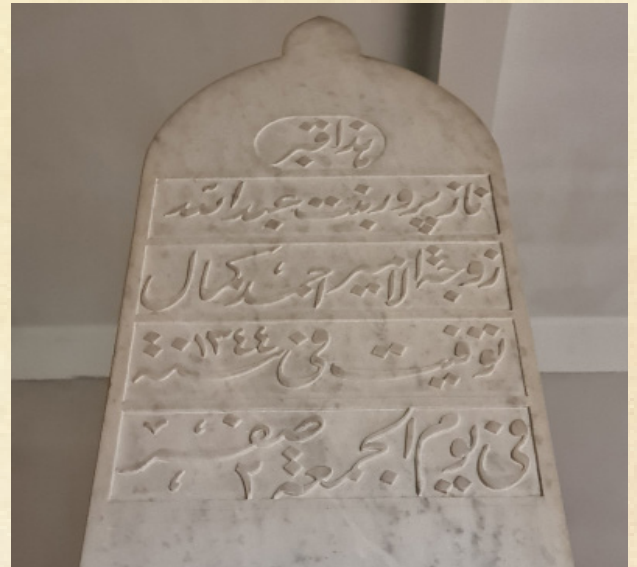 هذا قبر
ناز پرور بنت عبد الله
زوجة الامير احمد كمال
توفيت في سنة ١٣٤٤
في يوم الجمعة ٢ صفر